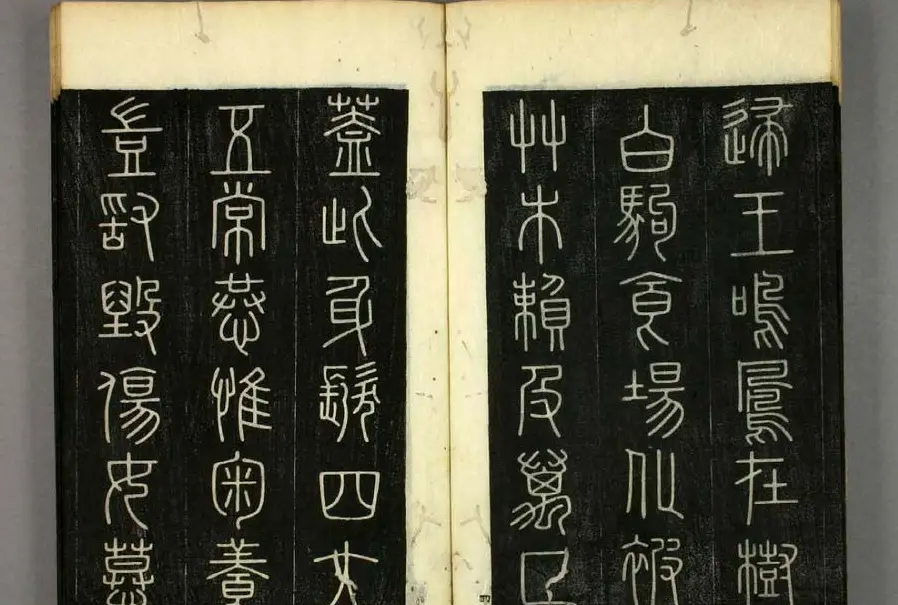 歸王鳴鳳在樹
白駒食場化被
艸木賴及萬方
蓋此身髮四大
五常恭惟鞠養
豈敢毀傷女慕